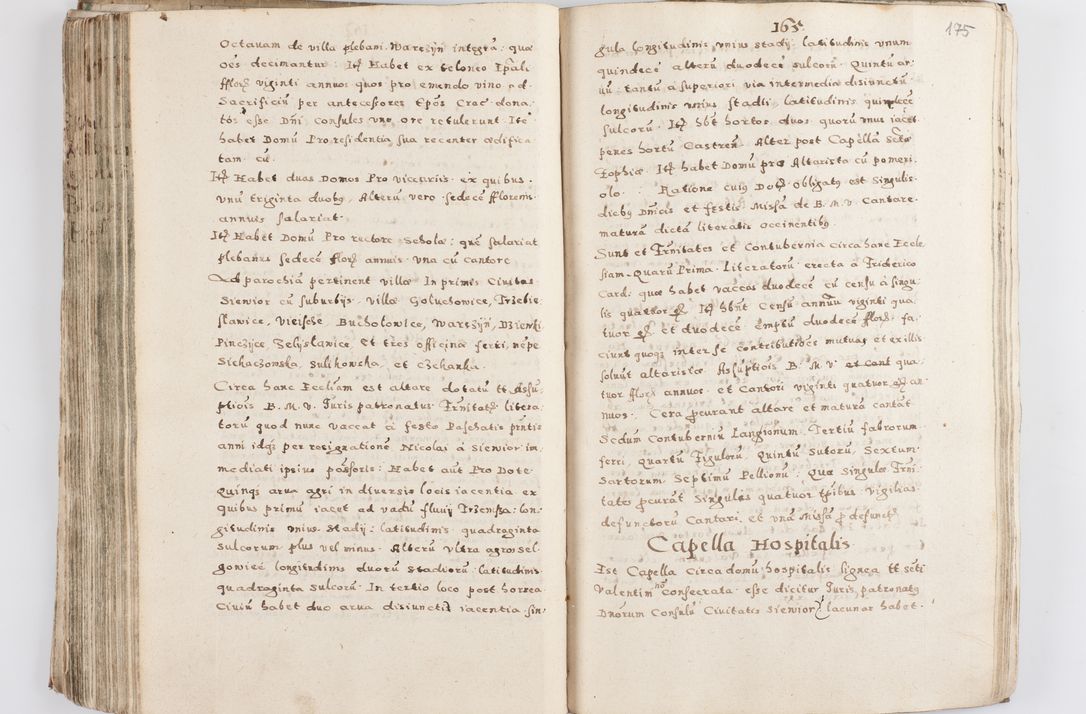 Octauam de villa plebani Warszÿn integrã: quæ
oẽs decimantur: Itẽ Habet ex teloneo Epãli
fflorẽ viginti annuos quos pro emendo vino ad
Sacrificiũ per antecessores Epõs Croc dona
tos esse Dñi Consules vno ore retulerunt. Itẽ
habet Domũ Pro residentia sua recenter ædifica
tam cũ
Itẽ Habet duas Domos Pro vicariis ex quibus
vnũ triginta duobꝰ Alterũ vero sedecẽ fflorenis
annuis salariat.
Itẽ Habet Domũ Pro rectore Scholæ: quẽ salariat
plebanus sedecẽ florẽ annuis vna cũ cantore
Ad parochiã pertinent villæ In primis Ciuitas
Siewior cũ suburbÿs. villæ Goluchowice, Trzebie
slawice, Vieisthe, Bucholowice, Warszÿn, Dziewki
Pinczÿce Zelyslawice, Et tres officinæ ferri, nẽpe
Sichaczowska, sulikowska, et Czchanka.
Circa hanc Eccliam est altare dotatũ tt Assũ
ptiois B. M. V. Juris patronatus Trñitatẽ litera
torũ quod nunc vaccat à festo Paschatis pñtis
anni idqꝫ per resignationẽ Nicolai à Siewior im
mediati ipsius possoris: Habet aũt Pro Dote
Quinqꝫ arua agri in diuersis locis iacentia ex
quibus primũ iacet ad vadũ fluuÿ Trzemska: lon
gitudinis vnius stadÿ: latitudinis quadraginta
sulcorum plus vel minus. Alterũ vltra agros sel
gowicẽ longitudinis duorũ stadiorũ: latitudinis
quadraginta sulcorũ. In tertio loco post horrea
Ciuiũ habet duo arua disiuncti iacentia sin
165.
175
gula longitudinis vnius stadÿ latitudinis vnum
quindecẽ alterũ duodecẽ sulcorũ. Quintũ ar
uũ tantũ a superiori via intermedia disiunctũ
longitudinis vnius stadii latitudinis quindecẽ
sulcorũ. Itẽ hẽt hortos duos quorũ vnus iacet
penes hortũ Castreñ. Alter post Capella Sctæ
Sophiæ. Itẽ habet Domũ pro Altarista cũ pomeri
olo. Ratione cuiꝰ Dotẽ obligatꝰ est Singulis
diebꝰ Dñicis et festis Missã de B. M. V. Cantare
maturã dictã literatis occinentibꝰ
Sunt et Trñitates et Contubernia circa hanc Eccle
siam. Quarũ Prima Literatorũ erecta á Friderico
Card: quæ habet vaccas duodecẽ cũ censu à singu
lis quattuor gꝫ. Itẽ hẽnt Censũ annuũ viginti qua
tuor gꝫ et duodecẽ Emptũ duodecẽ florẽ: fa
ciunt quoqꝫ inter se contributiões mutuas et ex illis
soluũt altaristæ Assũptiois B. M. V. et cant qua
tuor florẽ annuos et Cantori viginti quatuor gꝫ an
nuos. Cera pcurant altare et maturã cantãt
Secdum Contuberniũ Langionum. Tertiũ fabrorum
ferri, Quartũ Figulorũ. Quintũ sutorũ, Sextum
Sartorum Septimũ Pellionũ. Quæ singulæ Trñi
tates pcurãt Singulis quatuor tpibus vigilias
defunctorũ Cantari et vnã Missã p defunctẽ.
Capella Hospitalis.
Est Capella circa domũ hospitalis lignea tt Scti
Valentini nõ consecrata esse dicitur Juris patronatꝰ
Dnorum Consulũ Ciuitatis Siewior lacunar habet.